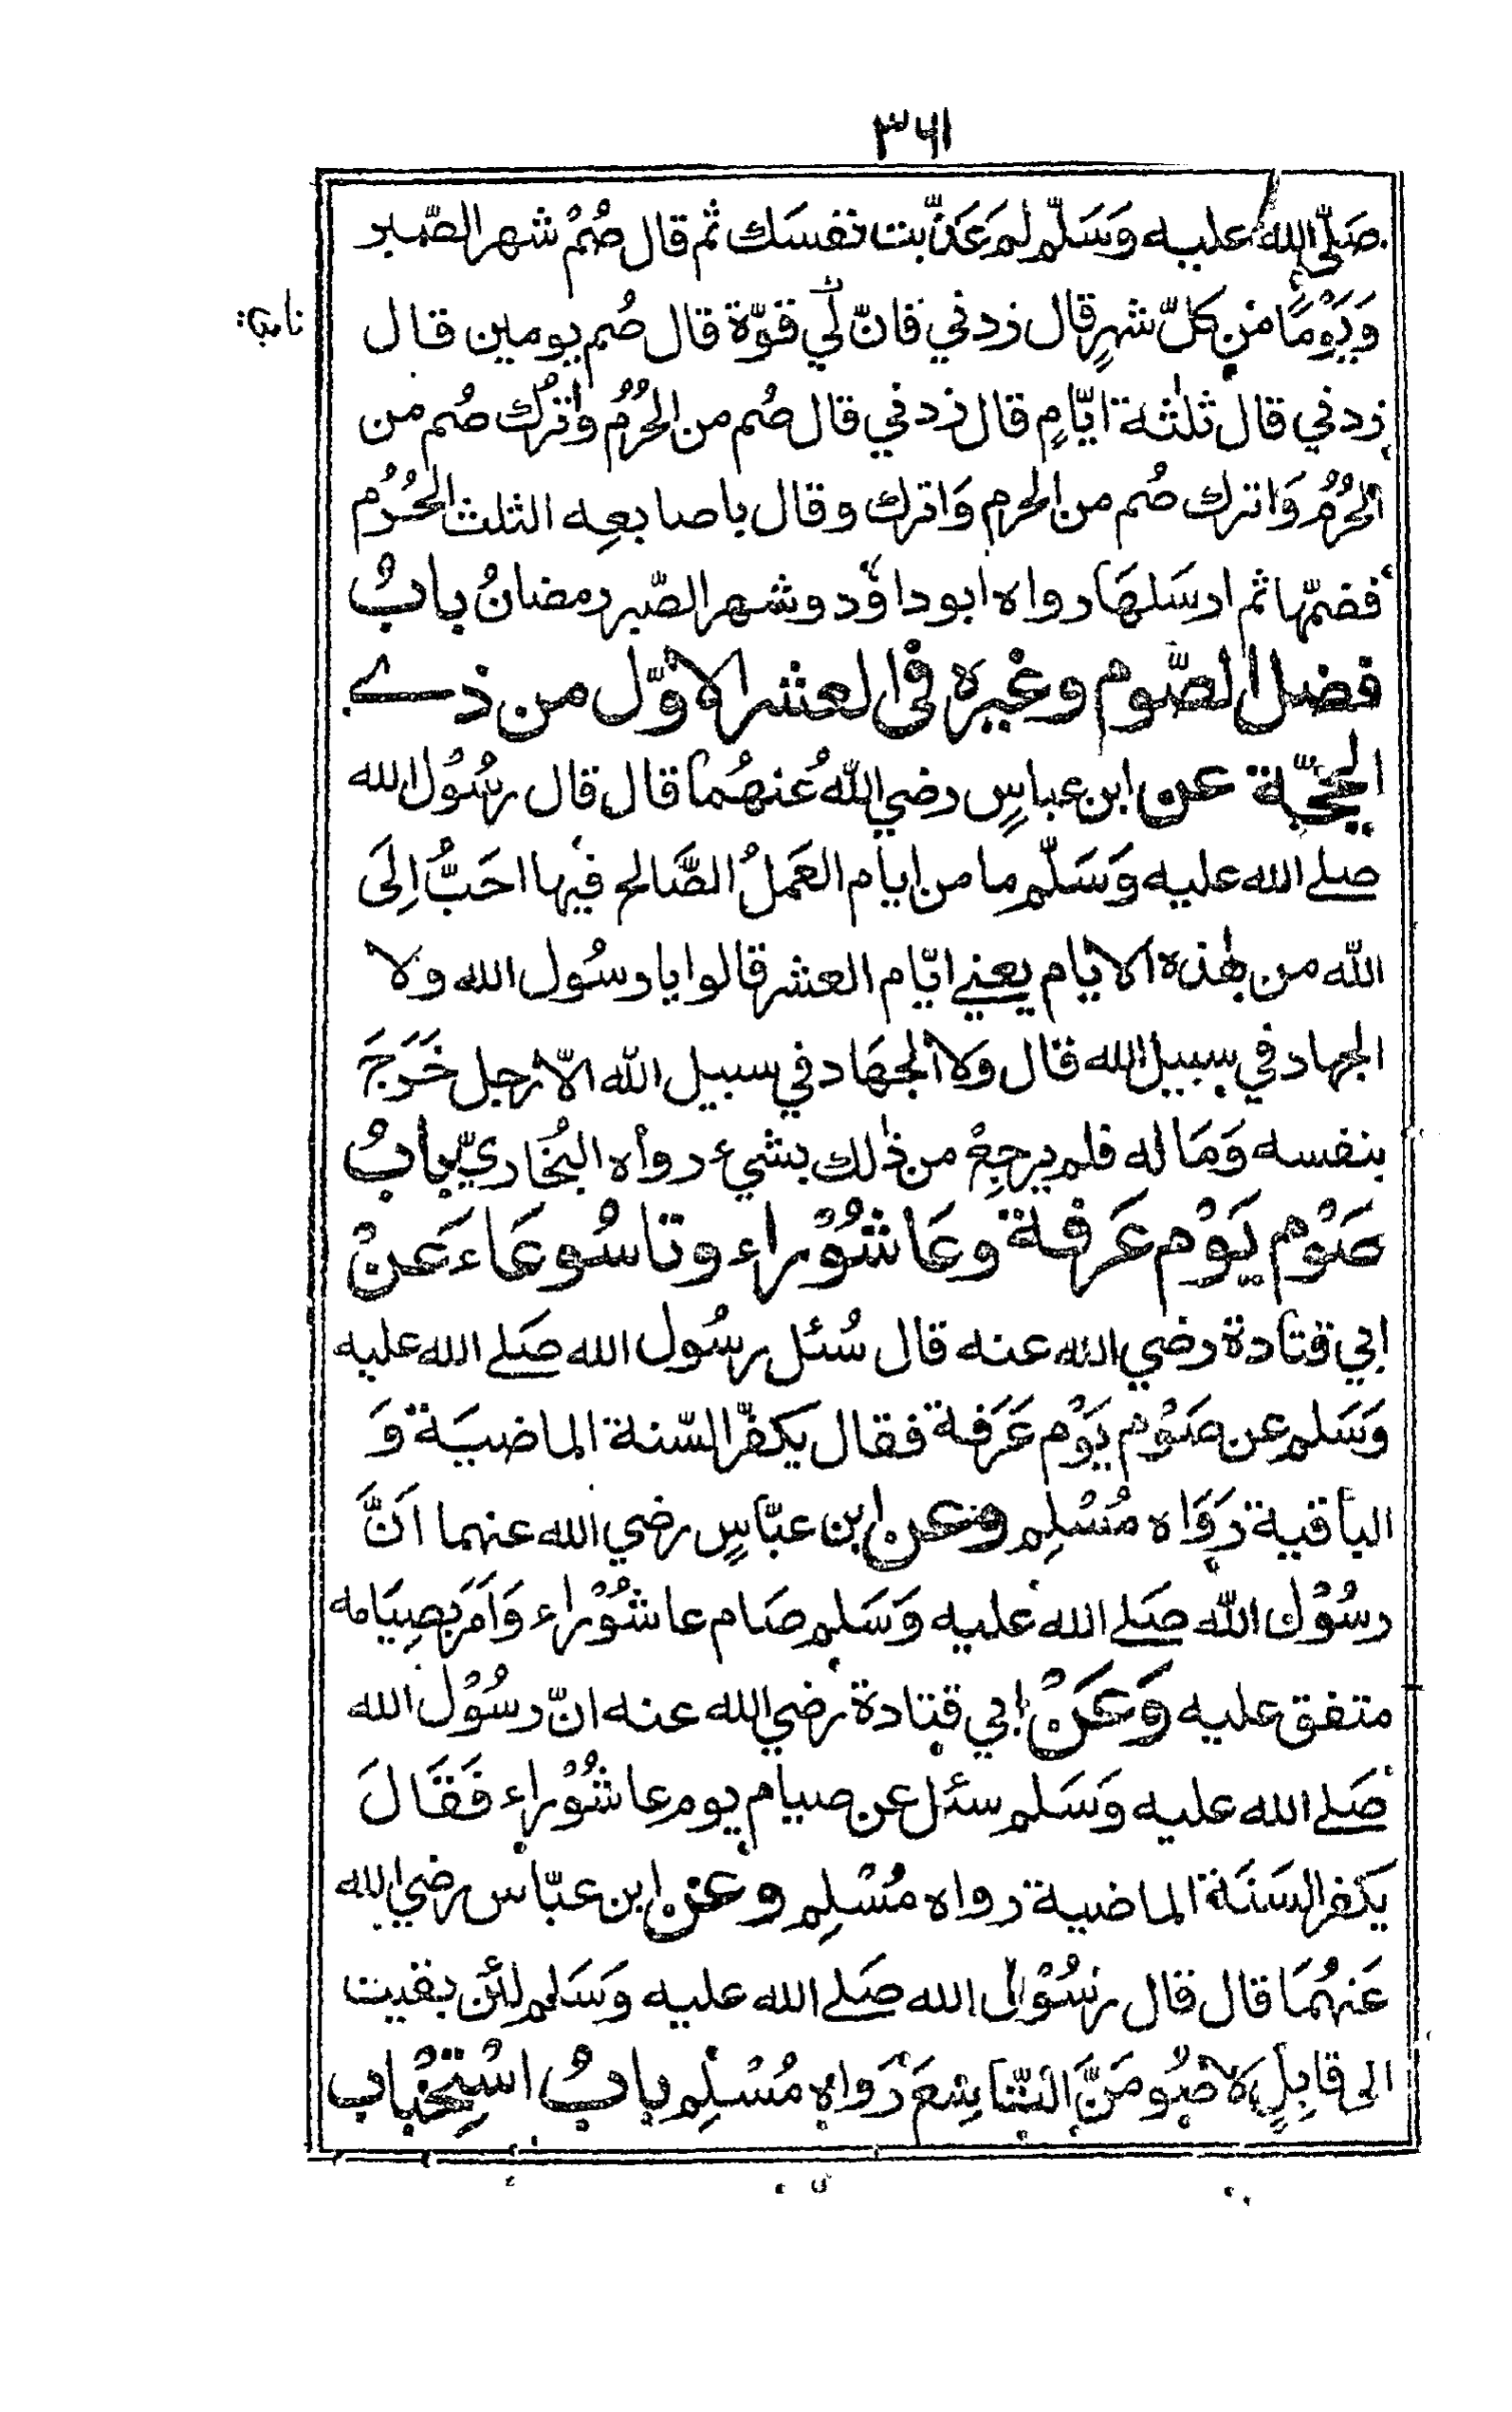 ٣٦١
صَلّى الله عليه وَسَلّم لم عَذّبت نفسَك ثم قال صُمْ شهر الصّبر
وَيَوْمًا من كلّ شهرٍ قال زدني فانّ لي قوّة قال صُم يومين قال
زدني قال ثلٰثة ايّامٍ قال زدني قال صُم من الحُرُم واترُك صُم من
الحُرُم وَاترك صُم من الحرم وَاترك وقال باصابعِه الثلث الحُرُم
فضمّها ثم ارسَلهَا رواه ابوداوٗد وشهر الصّبر رمضانُ بابُ
فضل الصّوم وغيره في العشر الاوّل من ذے
الحجّة عن ابن عباسٍ رضي اللّٰهُ عنهُما قال قال رسُوْل الله
صلے الله عليه وَسَلّم ما من ايام العَملُ الصَّالح فيها احَبُّ اِلَى
اللّٰه من هٰذه الايام يعني ايّام العشر قالوا يا رسُول الله ولا
الجهاد في سبيل الله قال وَلا الجهَاد في سبيل اللّٰه الّا رجل خَرَجَ
بنفسه وَمَاله فلم يرجِعْ من ذٰلك بشيء رواه البُخاريّ بابُ
صَوْم يَوْم عَرفة وعَاشُوْراء وتاسُوعَاء عَنْ
ابي قتادة رضي الله عنه قال سُئل رسُول الله صَلے الله عليه
وَسَلم عن صَوْم يَوْم عَرَفة فقال يكفّر السّنة الماضيَة وَ
الباقية رَوَاه مُسْلِم وعن ابن عبّاسٍ رضي الله عنهما اَنَّ
رسُوْل اللّٰه صَلے الله عليه وَسَلم صَام عاشُوْراء وَاَمَرَ بصِيَامه
متفق عليه وَعَنْ ابي قتادة رضي الله عنه انّ رسُوْل الله
صَلے الله عليه وَسَلم سئل عن صيام يوم عاشُوْراء فَقَالَ
يكفر السَنَة الماضية رواه مُسْلِم وعن ابن عبّاس رضي الله
عَنهُمَا قال قال رسُوْل الله صَلے الله عليه وَسَلم لئن بقيت
الى قابِلٍ لاَصُومَنَّ التّاسِعَ رَواه مُسْلِم بابُ اسْتِحْبَاب